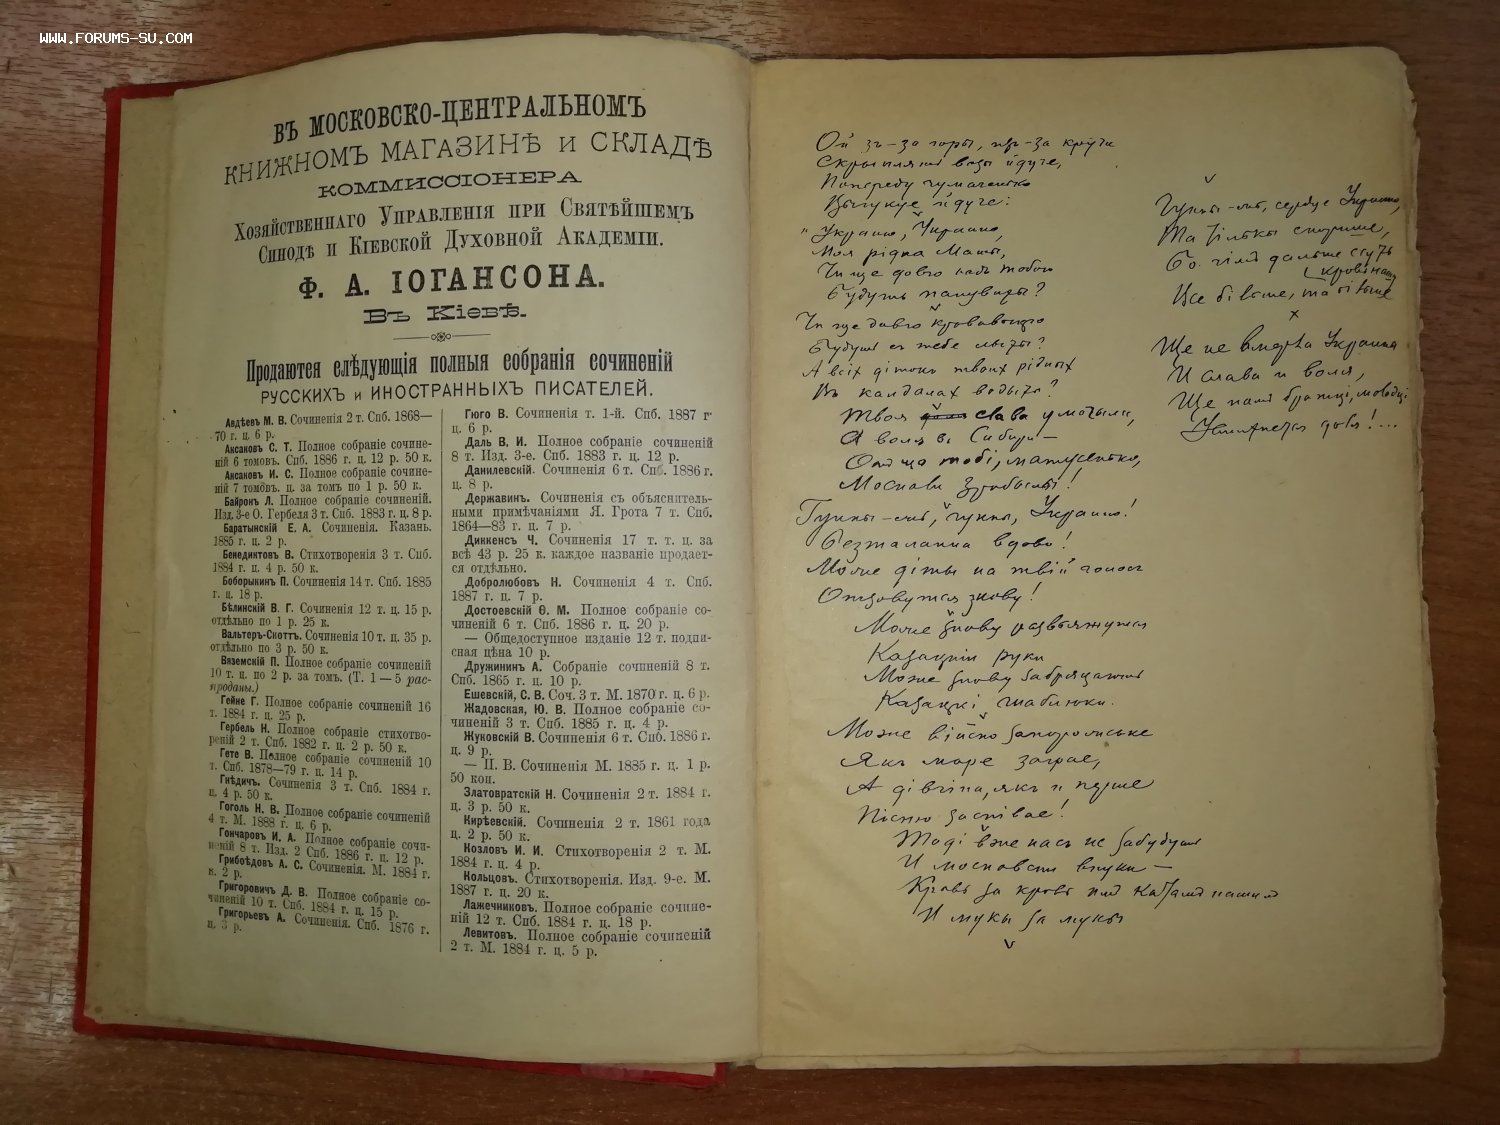 WWW.FORUMS-SU.COM
ВЪ МОСКОВСКО-ЦЕНТРАЛЬНОМЪ
КНИЖНОМЪ МАГАЗИНѢ И СКЛАДѢ
КОММИССІОНЕРА
Хозяйственнаго Управленія при Святѣйшемъ
Синодѣ и Кіевской Духовной Академіи.
Ф. А. ІОГАНСОНА.
Въ Кіевѣ.
Продаются слѣдующія полныя собранія сочиненій
РУССКИХЪ и ИНОСТРАННЫХЪ ПИСАТЕЛЕЙ.
Авдѣевъ М. В. Сочиненія 2 т. Спб. 1868—
70 г. ц. 6 р.
Аксаковъ С. Т. Полное собраніе сочине-
ній 6 томовъ. Спб. 1886 г. ц. 12 р. 50 к.
Аксаковъ И. С. Полное собраніе сочине-
ній 7 томовъ. ц. за томъ по 1 р. 50 к.
Байронъ Л. Полное собраніе сочиненій.
Изд. 3-е О. Гербеля 3 т. Спб. 1883 г. ц. 8 р.
Баратынскій Е. А. Сочиненія. Казань.
1885 г. ц. 2 р.
Бенедиктовъ В. Стихотворенія 3 т. Спб.
1884 г. ц. 4 р. 50 к.
Боборыкинъ П. Сочиненія 14 т. Спб. 1885
г. ц. 18 р.
Бѣлинскій В. Г. Сочиненія 12 т. ц. 15 р.
отдѣльно по 1 р. 25 к.
Вальтеръ-Скоттъ. Сочиненія 10 т. ц. 35 р.
отдѣльно по 3 р. 50 к.
Вяземскій П. Полное собраніе сочиненій
10 т. ц. по 2 р. за томъ. (Т. 1—5 рас-
проданы.)
Гейне Г. Полное собраніе сочиненій 16
т. 1884 г. ц. 25 р.
Гербель Н. Полное собраніе стихотво-
реній 2 т. Спб. 1882 г. ц. 2 р. 50 к.
Гете В. Полное собраніе сочиненій 10
т. Спб. 1878—79 г. ц. 14 р.
Гнѣдичъ. Сочиненія 3 т. Спб. 1884 г.
ц. 4 р. 50 к.
Гоголь Н. В. Полное собраніе сочиненій
4 т. М. 1888 г. ц. 6 р.
Гончаровъ И. А. Полное собраніе сочи-
неній 8 т. Изд. 2 Спб. 1886 г. ц. 12 р.
Грибоѣдовъ А. С. Сочиненія. М. 1884 г.
ц. 2 р.
Григоровичъ Д. В. Полное собраніе со-
чиненій 10 т. Спб. 1884 г. ц. 15 р.
Григорьевъ А. Сочиненія. Спб. 1876 г.
ц. 3 р.
Гюго В. Сочиненія т. 1-й. Спб. 1887 г
ц. 6 р.
Даль В, И. Полное собраніе сочиненій
8 т. Изд. 3-е. Спб. 1883 г. ц. 12 р.
Данилевскій. Сочиненія 6 т. Спб. 1886 г.
ц. 8 р.
Державинъ. Сочиненія съ объяснитель-
ными примѣчаніями Я. Грота 7 т. Спб.
1864—83 г. ц. 7 р.
Диккенсъ Ч. Сочиненія 17 т. т. ц. за
всѣ 43 р. 25 к. каждое названіе продает-
ся отдѣльно.
Добролюбовъ Н. Сочиненія 4 т. Спб.
1887 г. ц. 7 р.
Достоевскій Ѳ. М. Полное собраніе со-
чиненій 6 т. Спб. 1886 г. ц. 20 р.
— Общедоступное изданіе 12 т. подпи-
сная цѣна 10 р.
Дружининъ А. Собраніе сочиненій 8 т.
Спб. 1865 г. ц. 10 р.
Ешевскій, С. В. Соч. 3 т. М. 1870 г. ц. 6 р.
Жадовская, Ю. В. Полное собраніе со-
чиненій 3 т. Спб. 1885 г. ц. 4 р.
Жуковскій В. Сочиненія 6 т. Спб. 1886 г.
ц. 9 р.
— П. В. Сочиненія М. 1885 г. ц. 1 р.
50 коп.
Златовратскій Н. Сочиненія 2 т. 1884 г.
ц. 3 р. 50 к.
Кирѣевскій. Сочиненія 2 т. 1861 года
ц. 2 р. 50 к.
Козловъ И. И. Стихотворенія 2 т. М.
1884 г. ц. 4 р.
Кольцовъ. Стихотворенія. Изд. 9-е. М.
1887 г. ц. 20 к.
Лажечниковъ. Полное собраніе сочине-
ній 12 т. Спб. 1884 г. ц. 18 р.
Левитовъ. Полное собраніе сочиненій
2 т. М. 1884 г. ц. 5 р.
Ой зъ-за горы, изъ-за кручи
Скрыплять возы йдучи,
Попереду чумаченько
йдучи:
"Украино, Украино,
Моя рідна Маты,
Чи ще довго надъ тобою
Будуть пануваты?
Чи ще довго
Будуть съ тебе
А всіх діток твоих рідных
Въ кандалах водыть?
Твоя слава у могыли,
А воля въ Сибири —
Отъ що тобі, матусенько,
Москали зробылы!
Гукны-ж, гукны, Украино!
Безталанна вдово!
Може діты на твій голос
Отзовутся знову!
Може знову развяжутся
Казацкіи руки
Може знову забрязчать
Казацкі шаблюки.
Може військо запорожське
Якъ море заграе,
А дівчина, якъ и перше
Пісню заспівае!
Тоді вже нас не забудуть
И московски внуки —
Кровь за кровь
И муки за муки
Гукны-жъ, серце Украино,
Та тільки скорише,
Бо чімъ дальше
кров нашу
Все більше, та більше
Ще не вмерла Украина
И слава и воля,
Ще намъ братці, молодці
Усміхнется доля!...